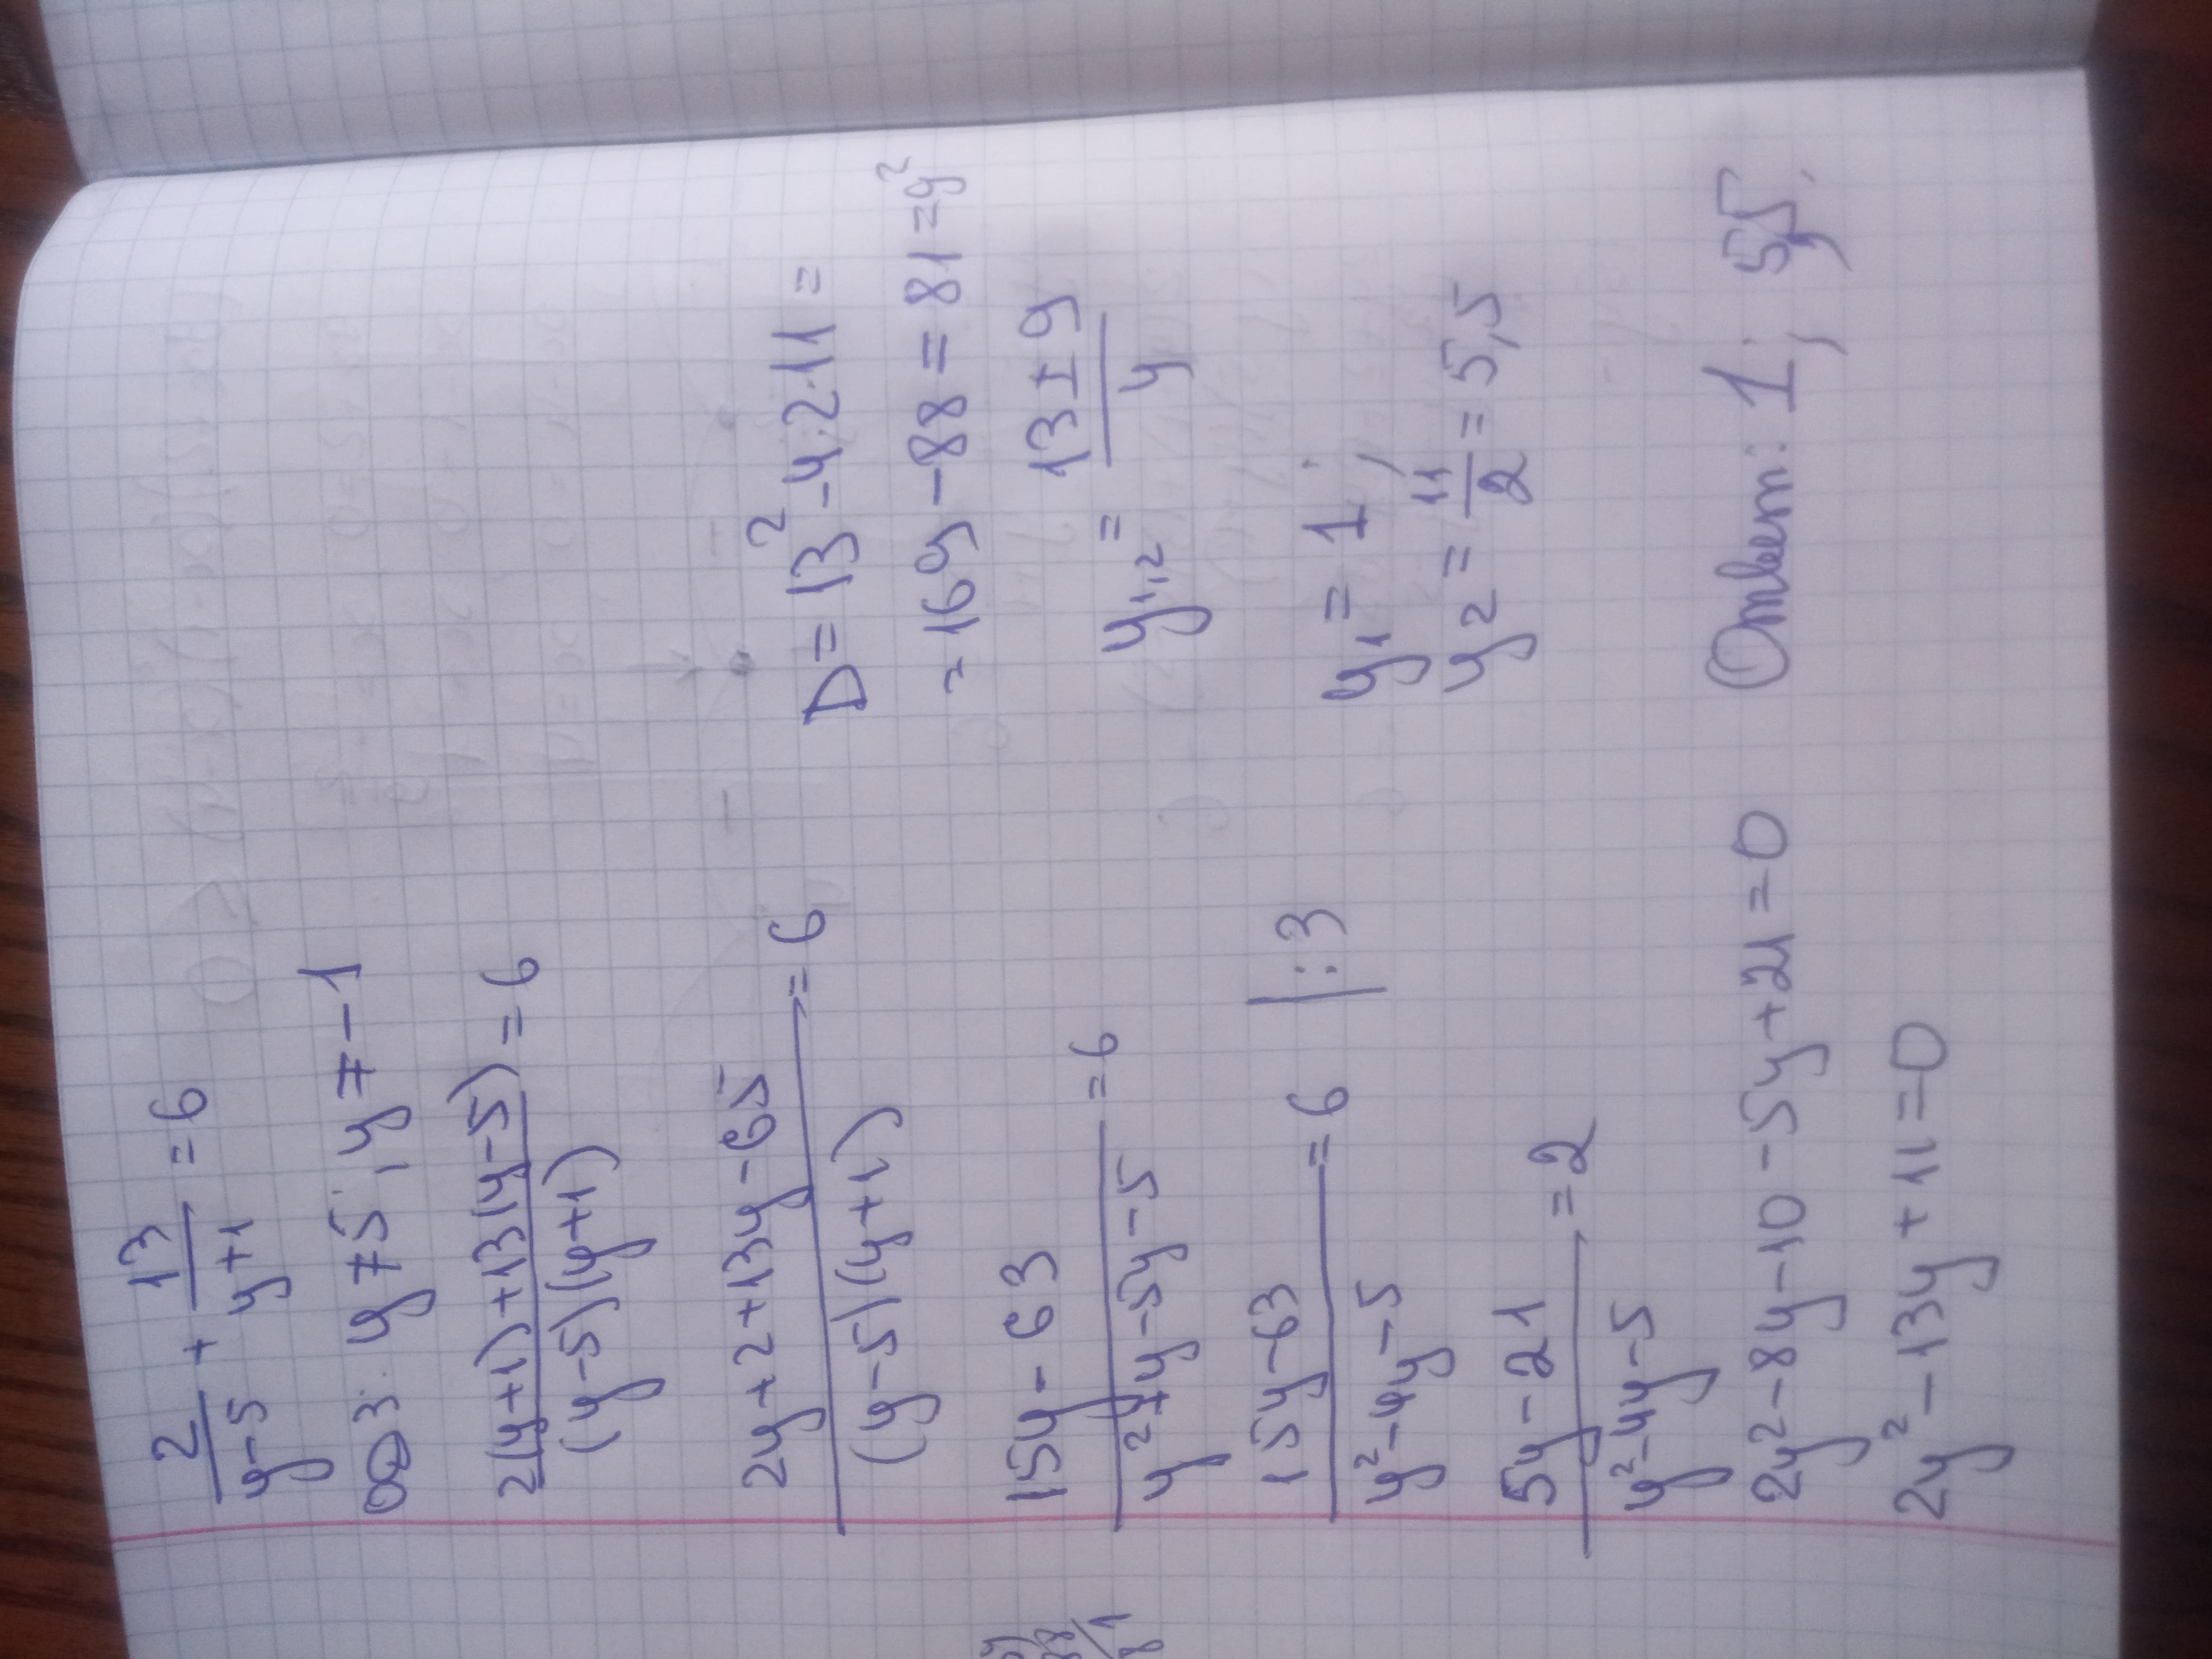 2/(y-5) + 13/(y+1) = 6
ОДЗ: y ≠ 5; y ≠ -1
(2(y+1)+13(y-5))/((y-5)(y+1)) = 6
(2y+2+13y-65)/((y-5)(y+1)) = 6
(15y-63)/(y²+y-5y-5) = 6
(15y-63)/(y²-4y-5) = 6 |:3
(5y-21)/(y²-4y-5) = 2
2y²-8y-10-5y+21=0
2y²-13y+11=0
D=13²-4·2·11=
=169-88=81=9²
y₁,₂ = (13±9)/4
y₁ = 1;
y₂ = 11/2 = 5,5
Ответ: 1; 5,5.
88
81